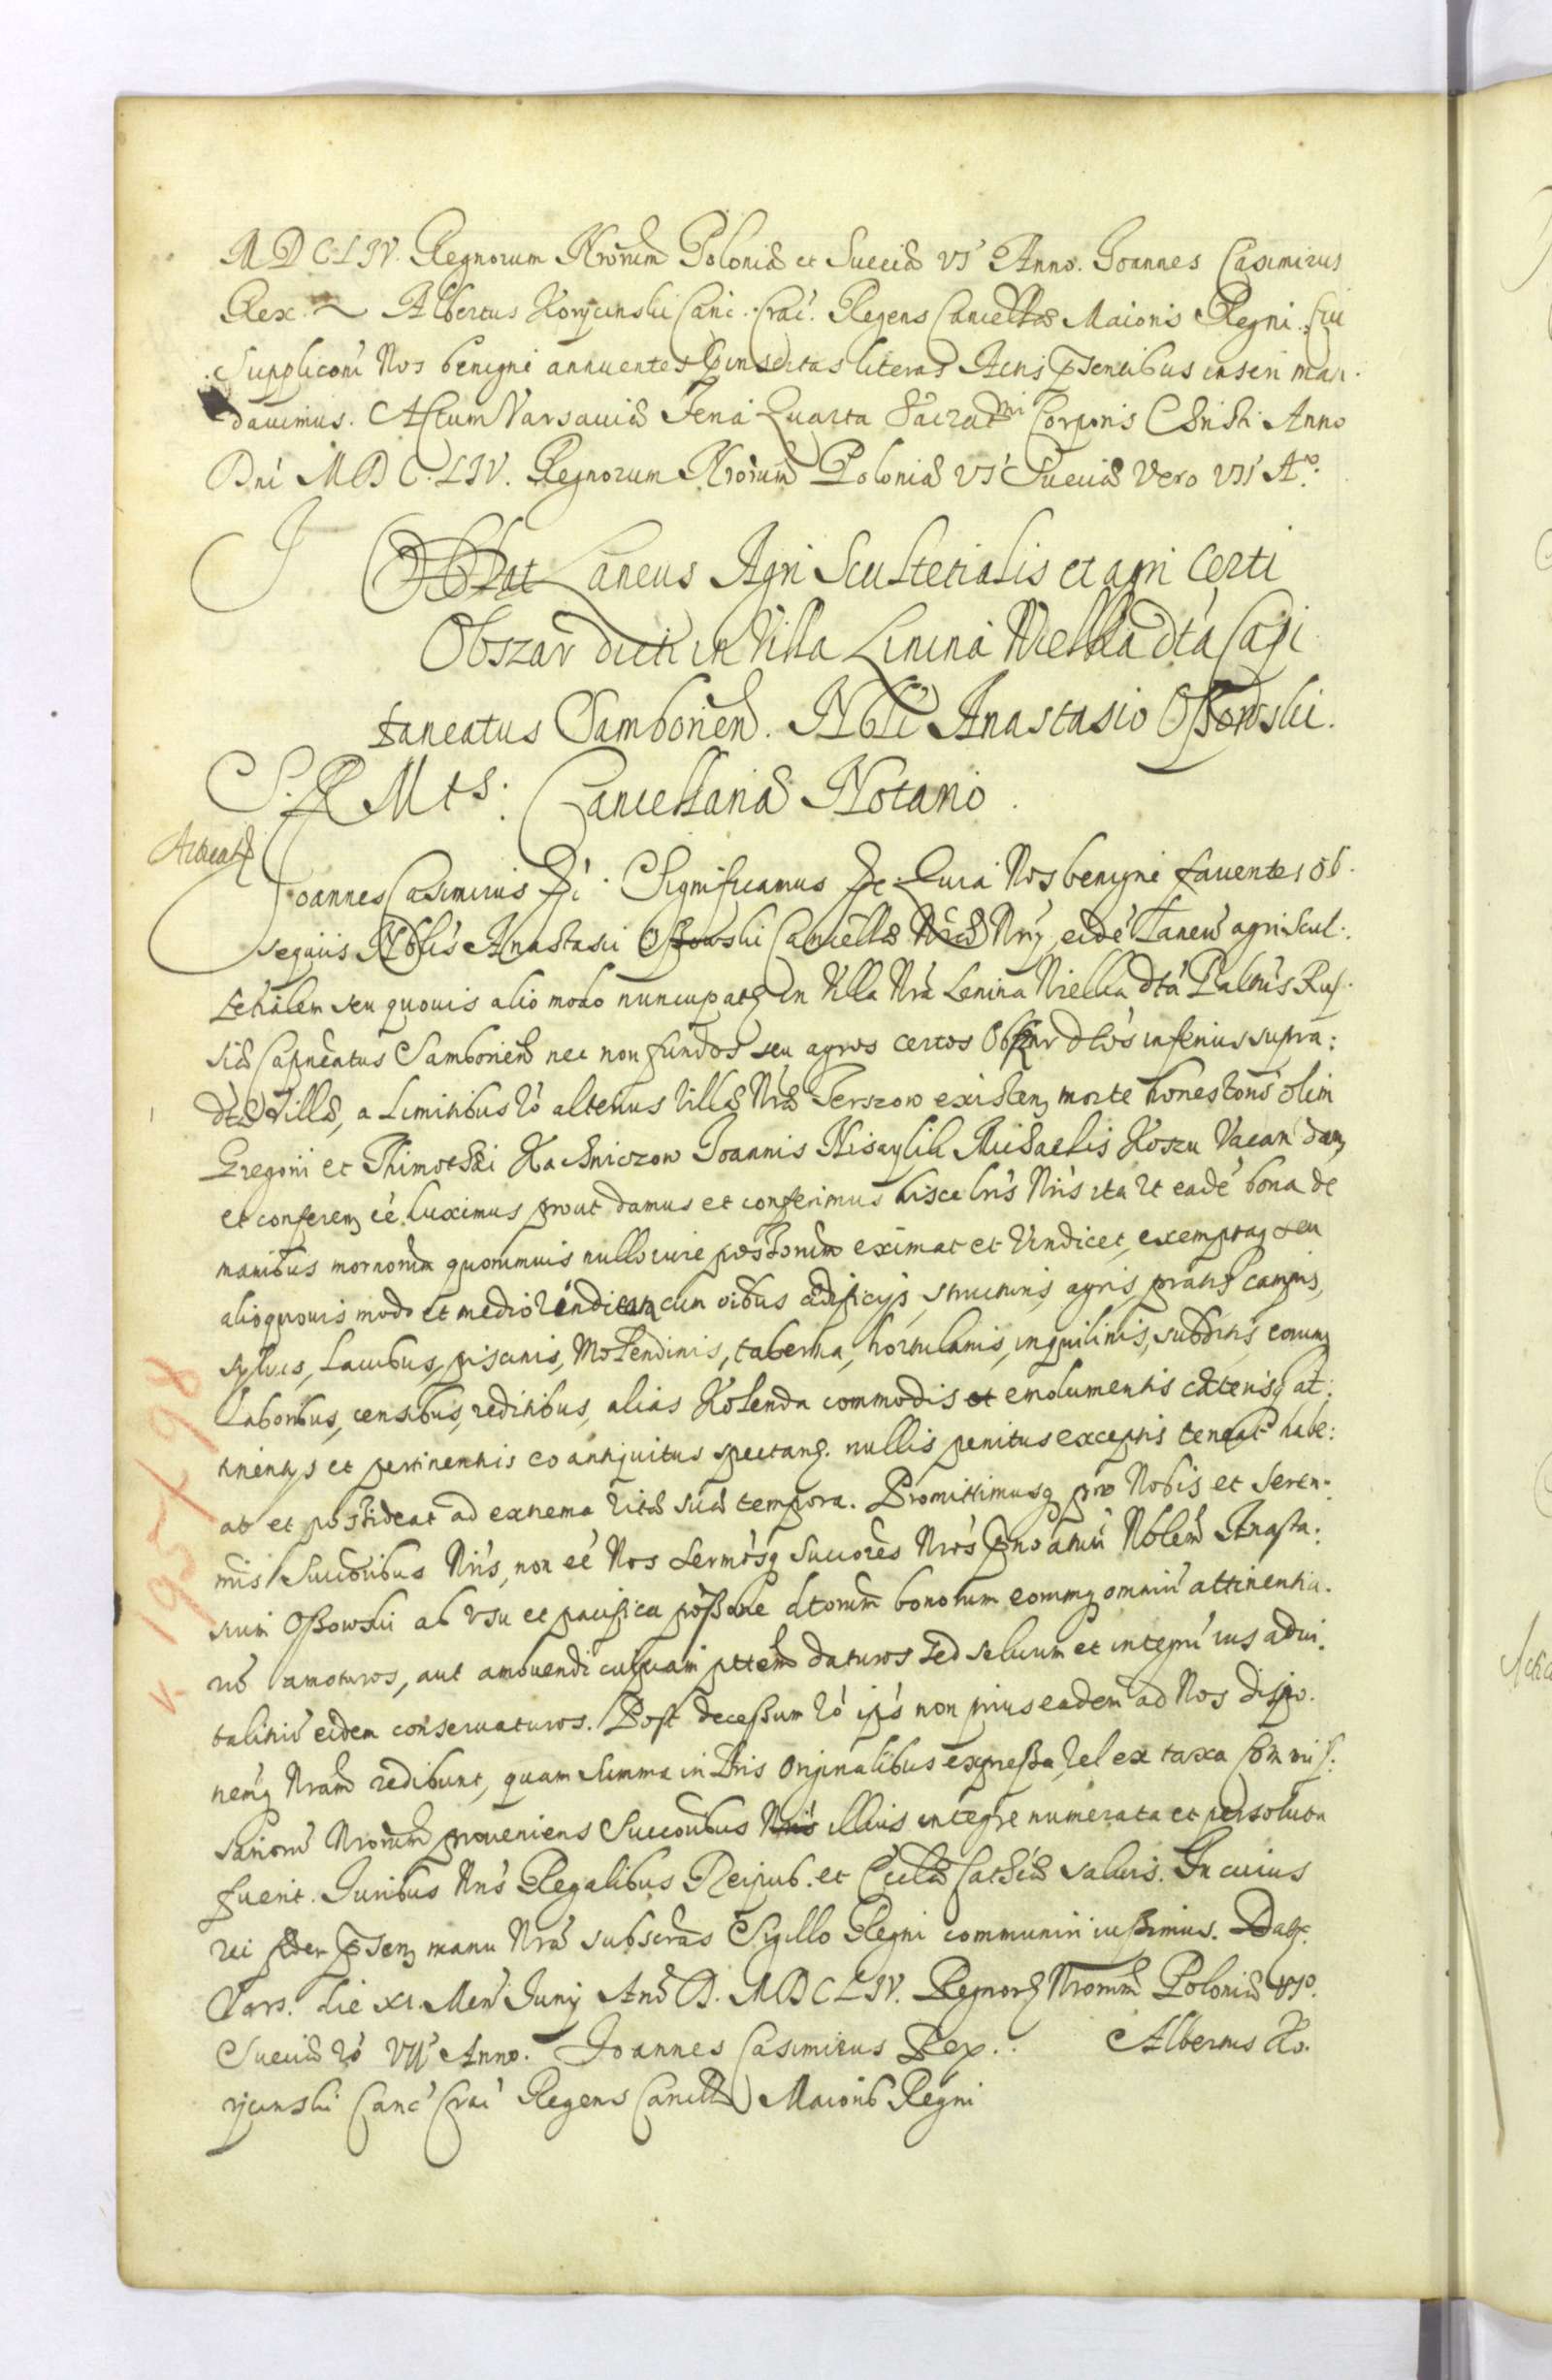 MDCLIV. Regnorum Nrorum Poloniæ et Sueciæ VI Anno. Joannes Casimirus
Rex. Albertus Korycinski Canc. Crac. Regens Cancellæ Maioris Regni. Cui
Suppliconi Nos benigne annuentes præinsertas literas Actis præsentibus inseri man-
davimus. Actum Varsaviæ Feria Quarta Sacratmi Corporis Christi Anno
Dni MDC.LIV. Regnorum Nrorum Poloniæ VI Sueciæ Vero VII Ao.
Laneus Agri Scultetialis et agri certi
Obszar dicti in Villa Linina Wielka dta Capi
taneatus Samborien. Nbli Anastasio Ossowski.
S. R. Mtis: Cancellariæ Notario.
Joannes Casimirus Significamus Quia Nos benigne faventes ob-
sequiis Nblis Anastasii Ossowski Cancellæ Nræ eidē Laneū agri scul-
tetialem seu quovis alio modo nuncupatū in Villa Nra Lenina Wielka dta Palnūs Rus-
siæ Capneatus Samborien nec non fundos seu agros certos Obszar dtos inferius supra:
dtæ Villæ, a Limitibus vo alterius Villæ Nræ Terszow existen, morte honestorū olim
Gregorii et Thimothei Kachniczow Joannis Michaelis Koscu Vacan dan,
et conferen eē. duximus prout damus et conferimus hisce lris Nris ita ut eadē bona de
manibus mornorum quorumvis nullo iure possorum eximat et Vindicet, exemptaq seu
alioquovis modo et medio Vindicata cum oibus ædificijs, structuris, agris, pratis, campis,
sylvis, Lacubus, piscinis, Molendinis, taberna, hortulanis, inquilinis, subditis eorumq
Laboribus, censibus, reditibus, alias Kolenda commodis et emolumentis cæterisq at:
tinentijs et pertinentiis eo antiquitus spectanq. nullis penitus exceptis teneat habe:
at et possideat ad extrema Vitæ suæ tempora. Promittimusq pro Nobis et Seren-
mis Succoribus Nris, non eē Nos Sermosq Succores Nros prænoatum Nblem Anasta:
sium Ossowski ab usu et pacifica possone dtorum bonorum eorumq omniū attinentia.
rū amoturos, aut amovendi cuipiam pttem daturos sed salvum et integrū ius advi-
talitiū eidem conservaturos. Post decessum vo ipsius non prius eadem ad Nos dispo-
nemq Nram redibunt, quam Summa in Lris Originalibus expressa, vel ex taxa Commis-
sariorū Nrorum proveniens Succoribus illius integre numerata et persoluta
fuerit. Juribus Nris Regalibus Reipub. et Eccliæ Cathcæ salvis. In cuius
rei fidem præsen, manu Nra subscras Sigillo Regni communiri iussimus. Dat
Vars. die XI. Men Junij Ano D. MDCLIV. Regnorq Nrorum Poloniæ VIo.
Sueciæ vo VII Anno. Joannes Casimirus Rex. Albertus Ko.
rycinski Canc Crac Regens Cancellæ Maioris Regni